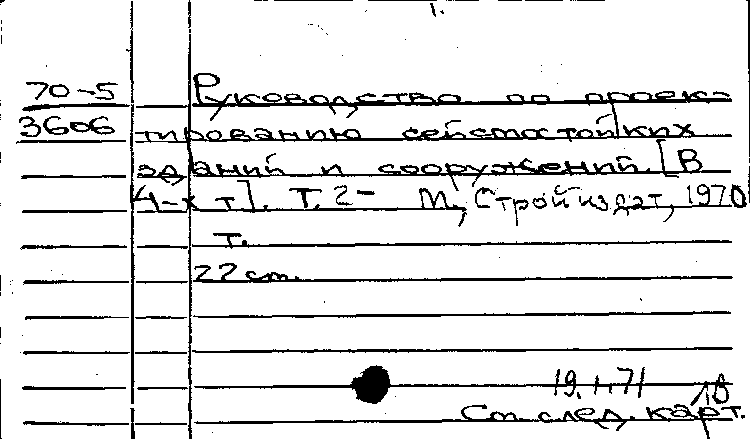 1.
70-5 Руководство по проек-
3606 тированию сейсмостойких
зданий и сооружений. [В
4-х т]. Т. 2- М., Стройиздат, 1970
т.
22 cm.
19.1.71
См след. карт.